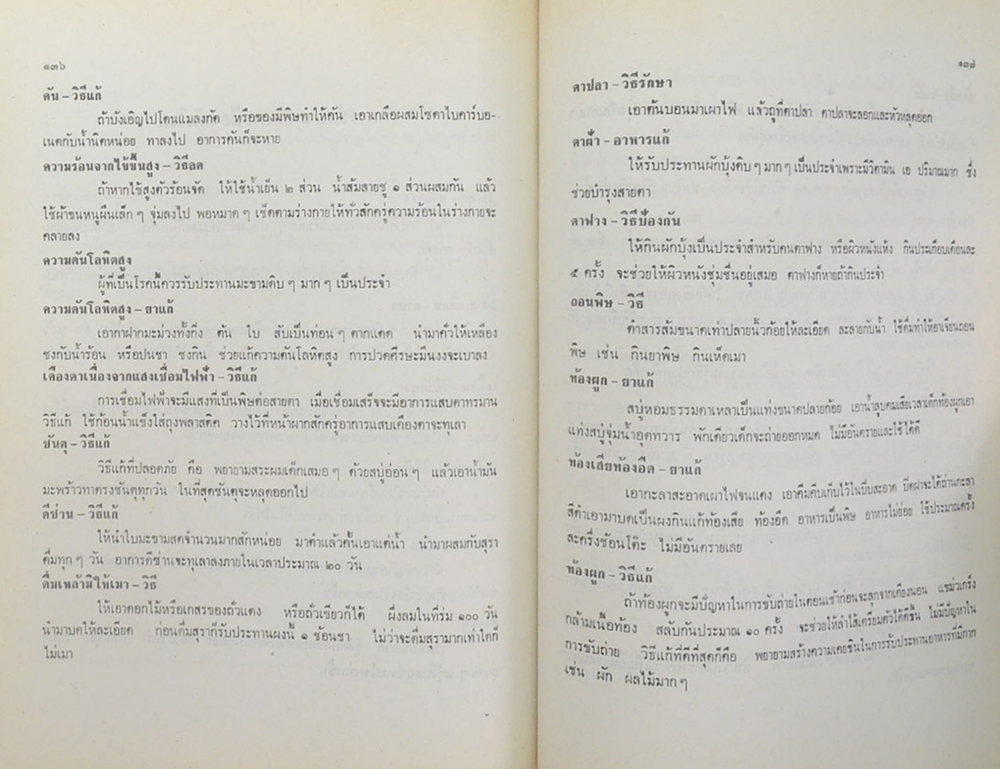 ๑๓๖
คัน – วิธีแก้
ถ้าบังเอิญไปโดนแมลงกัด หรือของมีพิษทำให้คัน เอาเกลือผสมโซดาไบคาร์บอ-
เนตกับน้ำนิดหน่อย ทาลงไป อาการคันก็จะหาย
ความร้อนจากไข้ขึ้นสูง – วิธีลด
ถ้าหากไข้สูงตัวร้อนจัด ให้ใช้น้ำเย็น ๒ ส่วน น้ำส้มสายชู ๑ ส่วนผสมกัน แล้ว
ใช้ผ้าขนหนูผืนเล็ก ๆ จุ่มลงไป พอหมาด ๆ เช็ดตามร่างกายให้ทั่วสักครู่ความร้อนในร่างกายจะ
คลายลง
ความดันโลหิตสูง
ผู้ที่เป็นโรคนี้ควรรับประทานมะขามดิบ ๆ มาก ๆ เป็นประจำ
ความดันโลหิตสูง – ยาแก้
เอากาฝากมะม่วงทั้งกิ่ง ต้น ใบ สับเป็นท่อน ๆ ตากแดด นำมาคั่วให้เหลือง
ชงกับน้ำร้อน หรือป่นชา ชงกิน ช่วยแก้ความดันโลหิตสูง การปวดศีรษะมึนงงจะเบาลง
เคืองตาเนื่องจากแสงเชื่อมไฟฟ้า – วิธีแก้
การเชื่อมไฟฟ้าจะมีแสงที่เป็นพิษต่อสายตา เมื่อเชื่อมเสร็จจะมีอาการแสบตาทรมาน
วิธีแก้ ใช้ก้อนน้ำแข็งใส่ถุงพลาสติค วางไว้ที่หน้าผากสักครู่อาการแสบเคืองตาจะทุเลา
ชันตุ – วิธีแก้
วิธีแก้ที่ปลอดภัย คือ พยายามสระผมเด็กเสมอ ๆ ด้วยสบู่อ่อน ๆ แล้วเอาน้ำมัน
มะพร้าวทาตรงชันตุทุกวัน ในที่สุดชันตุจะหลุดออกไป
ดีซ่าน – วิธีแก้
ให้นำใบมะขามสดจำนวนมากสักหน่อย มาตำแล้วคั้นเอาแต่น้ำ นำมาผสมกับสุรา
ดื่มทุก ๆ วัน อาการดีซ่านจะทุเลาลงภายในเวลาประมาณ ๒๐ วัน
ดื่มเหล้ามิให้เมา – วิธี
ให้เอาดอกไม้หรือเกสรของถั่วแดง หรือถั่วเขียวก็ได้ ผึ่งลมในที่ร่ม ๑๐๐ วัน
นำมาบดให้ละเอียด ก่อนดื่มสุราก็รับประทานผงนี้ ๑ ช้อนชา ไม่ว่าจะดื่มสุรามากเท่าใดก็
ไม่เมา
ตาปลา – วิธีรักษา
เอาต้นบอนมาเผาไฟ แล้วถูที่ตาปลา ตาปลาจะลอกและหัวหลุดออก
ตาฝ้า – อาหารแก้
ให้รับประทานผักบุ้งดิบ ๆ มาก ๆ เป็นประจำเพราะมีวิตามิน เอ ปริมาณมาก ซึ่ง
ช่วยบำรุงสายตา
ตาฟาง – วิธีป้องกัน
ให้กินผักบุ้งเป็นประจำสำหรับคนตาฟาง หรือผิวหนังแห้ง กินประเกือบเดือนละ
๕ ครั้ง จะช่วยให้ผิวหนังชุ่มชื่นอยู่เสมอ ตาฟางก็หายถ้ากินประจำ
ถอนพิษ – วิธี
ตำสารส้มขนาดเท่าปลายนิ้วก้อยให้ละเอียด ละลายกับน้ำ ใช้ดื่มทำให้อาเจียนถอน
พิษ เช่น กินยาพิษ กินเห็ดเมา
ท้องผูก – ยาแก้
สบู่หอมธรรมดาเหลาเป็นแท่งขนาดปลายก้อย เอาน้ำลูบคมเสียเวลาเด็กท้องผูกเอา
แท่งสบู่จุ่มน้ำอุดทวาร พักเดียวเด็กจะถ่ายออกหมด ไม่มีอันตรายและใช้ได้ดี
ท้องเสียท้องอืด – ยาแก้
เอากะลาสะอาดเผาไฟจนแดง เอาคีมคีบเก็บไว้ในปี๊บสะอาด ปิดฝาจะได้ถ่านกะลา
สีดำเอามาบดเป็นผงกินแก้ท้องเสีย ท้องอืด อาหารเป็นพิษ อาหารไม่ย่อย ใช้ประมาณครั้ง
ละครึ่งช้อนโต๊ะ ไม่มีอันตรายเลย
ท้องผูก – วิธีแก้
ถ้าท้องผูกจะมีปัญหาในการขับถ่ายในตอนเช้าก่อนจะลุกจากเตียงนอน แขม่วเกร็ง
กล้ามเนื้อท้อง สลับกันประมาณ ๑๐ ครั้ง จะช่วยให้ลำไส้เตรียมตัวได้ดีขึ้น ไม่มีปัญหาใน
การขับถ่าย วิธีแก้ที่ดีที่สุดก็คือ พยายามสร้างความเคยชินในการรับประทานอาหารที่มีกาก
เช่น ผัก ผลไม้มาก ๆ